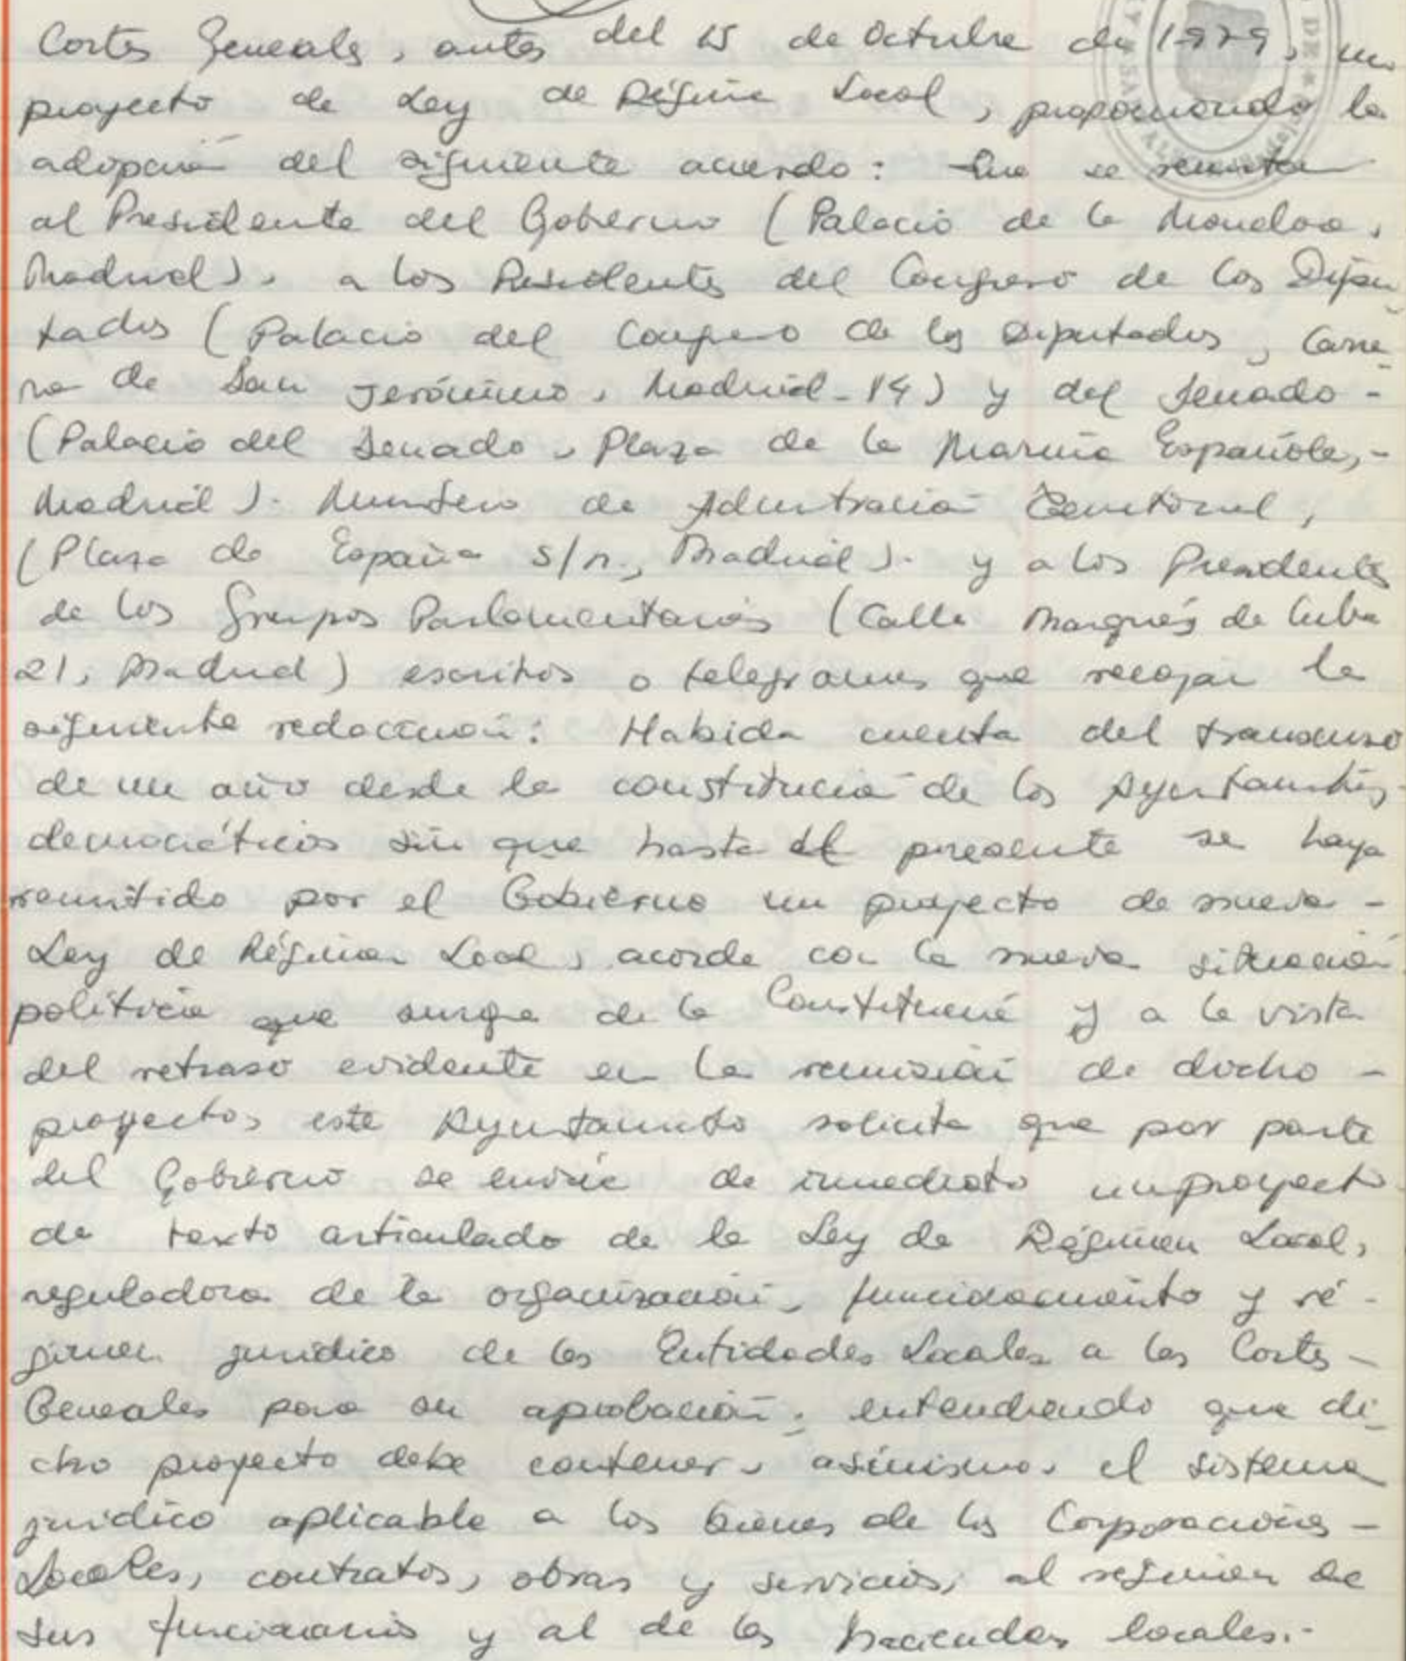 Cortes Generales, antes del 15 de Octubre de 1979, un
proyecto de Ley de Régimen Local, proponiendo la
adopción del siguiente acuerdo: Que se remitan
al Presidente del Gobierno (Palacio de la Moncloa,
Madrid). a los Presidentes del Congreso de los Dipu-
tados (Palacio del Congreso de los Diputados, Carre-
ra de San Jerónimo, Madrid-14) y del Senado-
(Palacio del Senado, Plaza de la Marina Española,-
Madrid). Ministerio de Administración Territorial,
(Plaza de España s/n., Madrid). y a los Presidentes
de los Grupos Parlamentarios (Calle Marqués de Cuba
21, Madrid) escritos o telegramas que recojan la
siguiente redacción: Habida cuenta del transcurso
de un año desde la constitución de los Ayuntamientos
democráticos sin que hasta el presente se haya
remitido por el Gobierno un proyecto de nueva-
Ley de Régimen Local, acorde con la nueva situación
política que surge de la Constitución y a la vista
del retraso evidente en la remisión de dicho-
proyecto, este Ayuntamiento solicita que por parte
del Gobierno se envíe de inmediato un proyecto
de texto articulado de la Ley de Régimen Local,
reguladora de la organización, funcionamiento y ré-
gimen jurídico de las Entidades Locales a las Cortes-
Generales para su aprobación, entendiendo que di-
cho proyecto debe contener, asimismo, el sistema
jurídico aplicable a los bienes de las Corporaciones-
Locales, contratos, obras y servicios, al régimen de
sus funcionarios y al de las haciendas locales.-